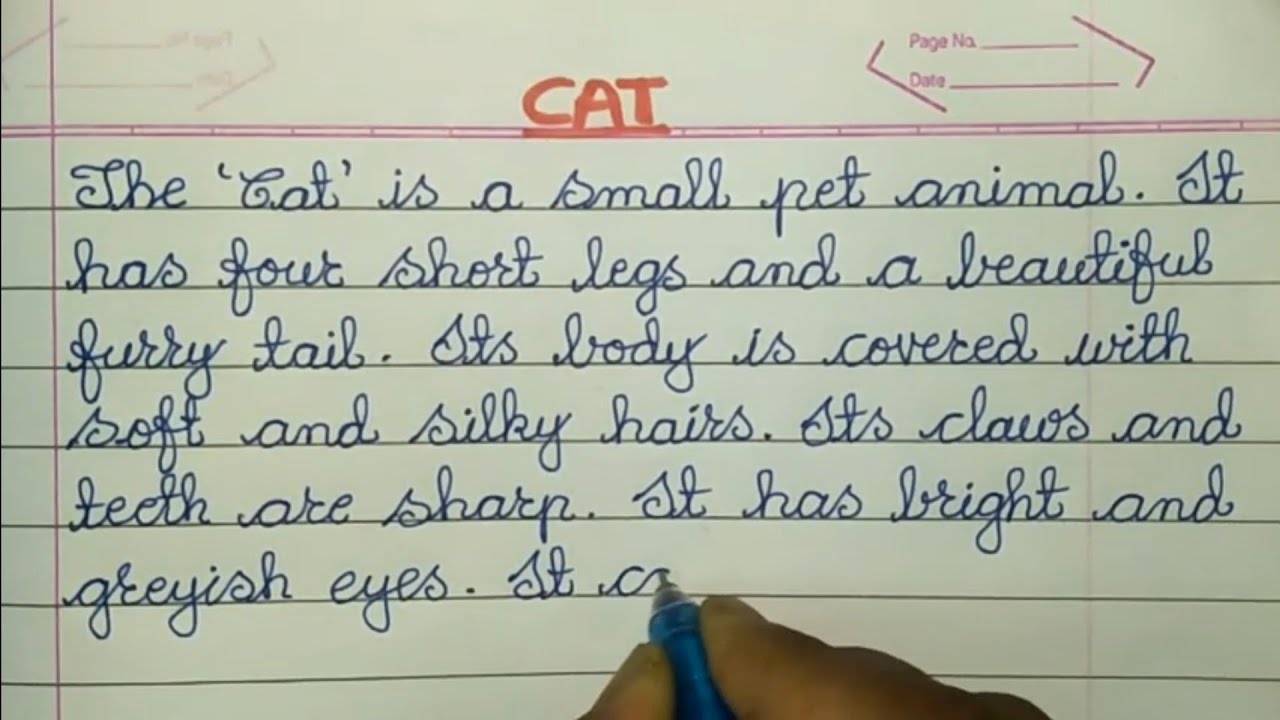 Page No.
Date
CAT
The 'Cat' is a small pet animal. It
has four short legs and a beautiful
furry tail. Its body is covered with
soft and silky hairs. Its claws and
teeth are sharp. It has bright and
greyish eyes. It